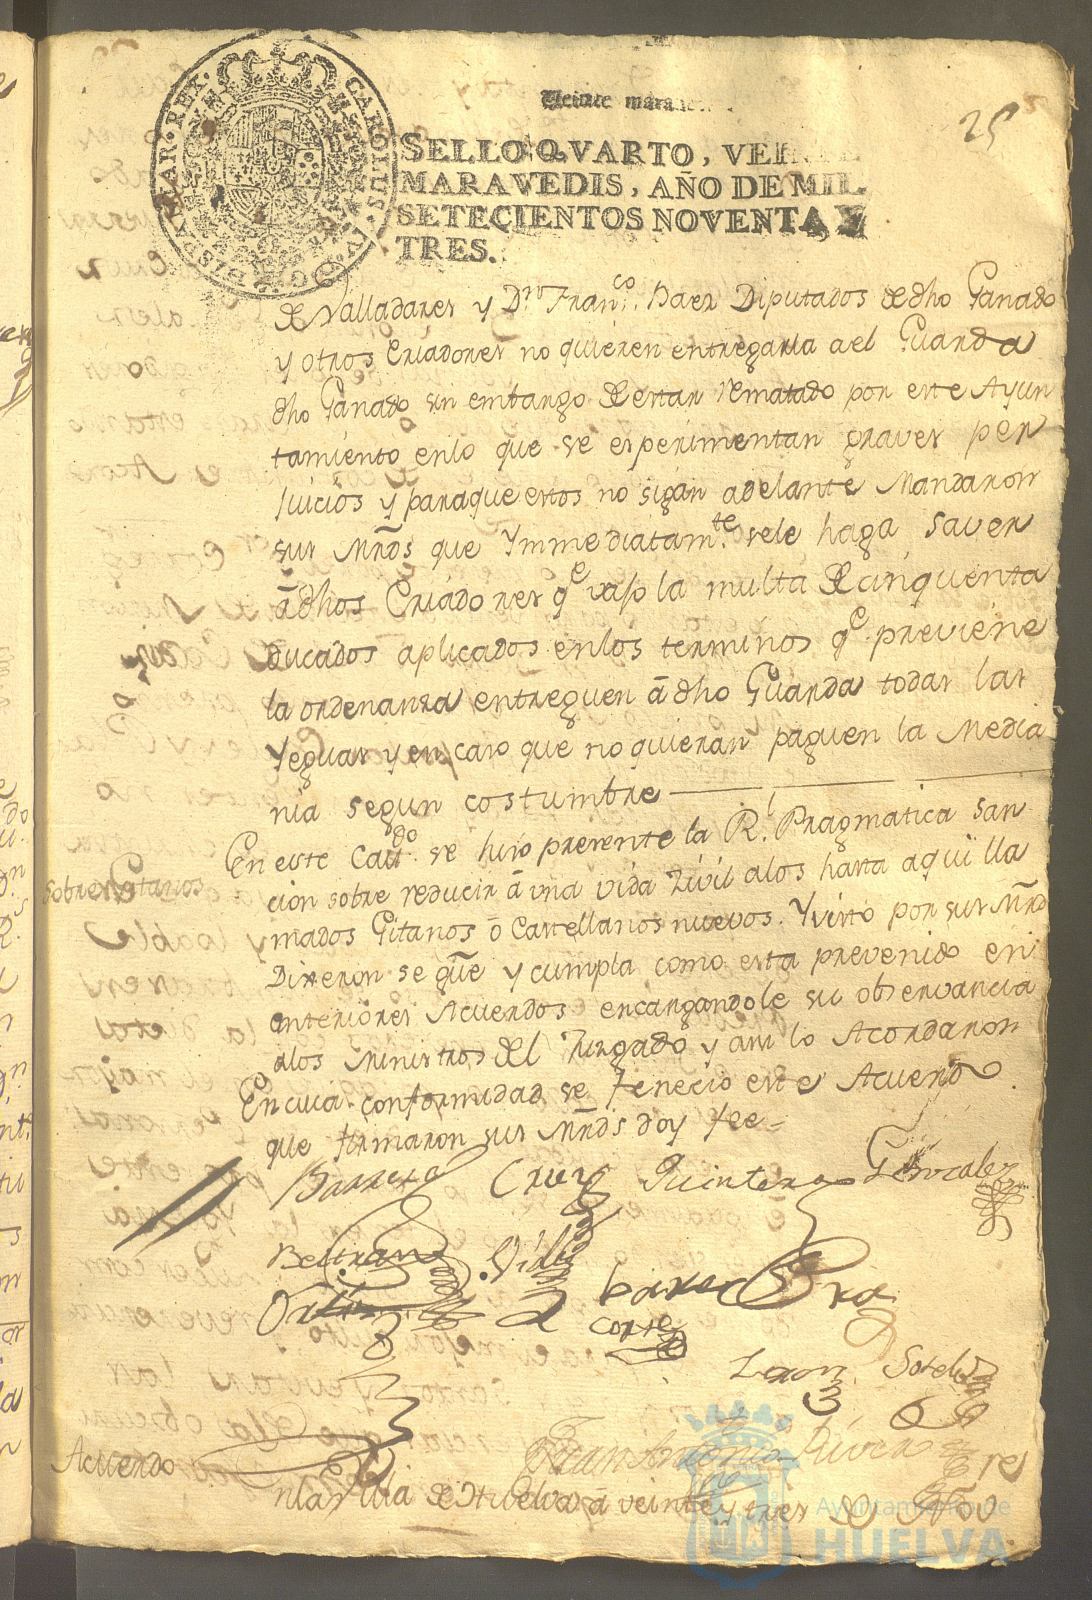 Veinte marave
25
SELLO QVARTO, VEINTE
MARAVEDIS, AÑO DE MIL
SETECIENTOS NOVENTA Y
TRES.
CAROLUS IV D G HISP ... REX
de Valladares y Dn Franco. Baez Diputados de dho Ganado
y otros Criadores no quieren entregarla a el Guarda
dho Ganado sin embargo de estar rematado por este Ayun
tamiento en lo que se esperimentan graves per
Juicios y para que estos no sigan adelante Mandaron
sus Mrds que Ymmediatamte. se le haga saver
â dhos Criadores qe vajo la multa de cinquenta
ducados aplicados en los terminos qe. previene
la ordenanza entreguen â dho Guarda todas las
Yeguas y en caso que no quieran paguen la Media
nia segun costumbre
En este Cavdo. se hizo presente la Rl. Pragmatica San
cion sobre reducir â vna vida Zivil a los hasta aqui lla
mados Gitanos ô Castellanos nuevos. Y visto por sus Mrds
Dixeron se gûe y cumpla como esta prevenido en
anteriores Acuerdos encargandole su observancia
a los Ministros del Juzgado y assi lo Acordaron
sobre Gitanos
En cuia conformidad se feneció este Acuerdo
que firmaron sus Mrds doy fee
Barreto Cruz Quintero Gonzalez
Beltran Vides
Ortiz
Corte
Leon Sotelo
Juan Antonio
Acuerdo
En la Villa de Huelva â veinte y tres de
Ayuntamiento de
HUELVA